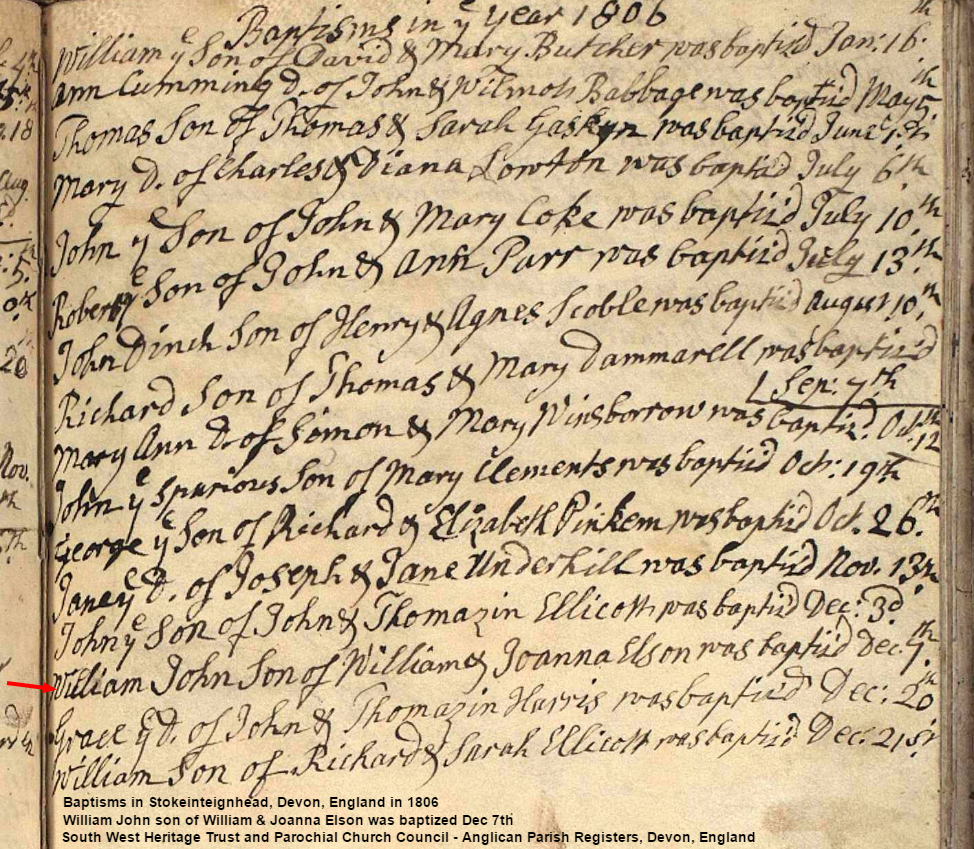 Baptisms in yᵉ year 1806
William yᵉ Son of David & Mary Butcher was baptiz'd Jan: 16th
Ann Cumming d. of John & Wilmott Babbage was baptiz'd May 5th
Thomas Son of Thomas & Sarah Gaskyn was baptiz'd June 1st
Mary D. of Charles & Diana Lowton was baptiz'd July 6th
John yᵉ Son of John & Mary Coke was baptiz'd July 10th
Robert yᵉ Son of John & Ann Purr was baptiz'd July 13th
John Dinch Son of Henry & Agnes Scoble was baptiz'd August 10th
Richard Son of Thomas & Mary Dammarell was baptiz'd
Sep: 7th
Mary Ann D. of Simon & Mary Winsborrow was baptiz'd Oct: 12th
John yᵉ Spurious Son of Mary Clements was baptiz'd Oct: 19th
George yᵉ Son of Richard & Elizabeth Pinkem was baptiz'd Oct. 26th
Jane yᵉ D. of Joseph & Jane Underhill was baptiz'd Nov. 13th
John yᵉ Son of John & Thomazin Ellicott was baptiz'd Dec: 3d
William John Son of William & Joanna Elson was baptiz'd Dec. 7th
Grace yᵉ d. of John & Thomazin Harris was baptiz'd Dec: 20
William Son of Richard & Sarah Ellicott was baptiz'd Dec: 21st
Baptisms in Stokeinteignhead, Devon, England in 1806
William John son of William & Joanna Elson was baptized Dec 7th
South West Heritage Trust and Parochial Church Council - Anglican Parish Registers, Devon, England